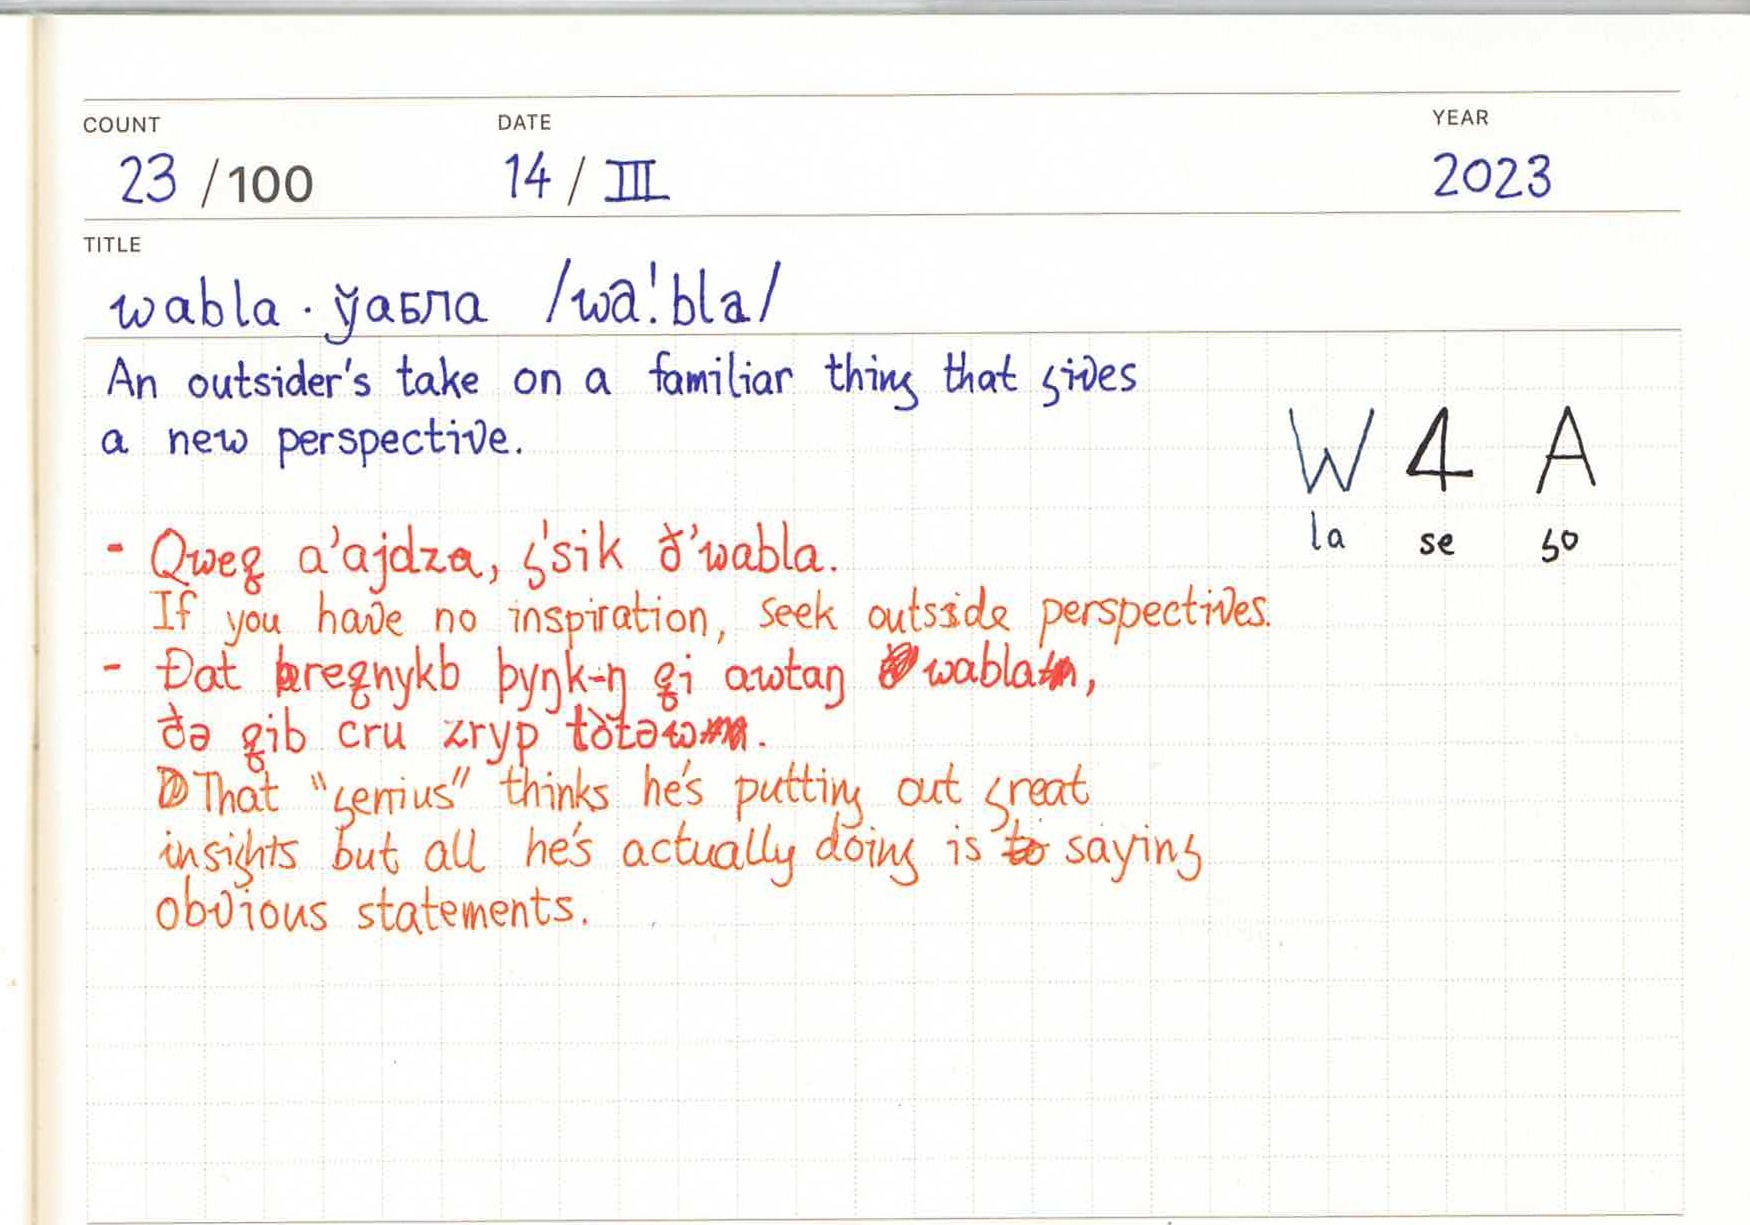 COUNT DATE YEAR
23 /100 14 / III 2023
TITLE
wabla · ўабла /wa!bla/
An outsider's take on a familiar thing that gives
a new perspective.
W 4 A
la se so
- Qweƍ a'ajdza, ɕ'sik ð'wabla.
If you have no inspiration, seek outside perspectives.
- Ðat þyŋk-ŋ awtaŋ wabla,
ðə cru zryp
That "genius" thinks he's putting out great
insights but all he's actually doing is to saying
obvious statements.